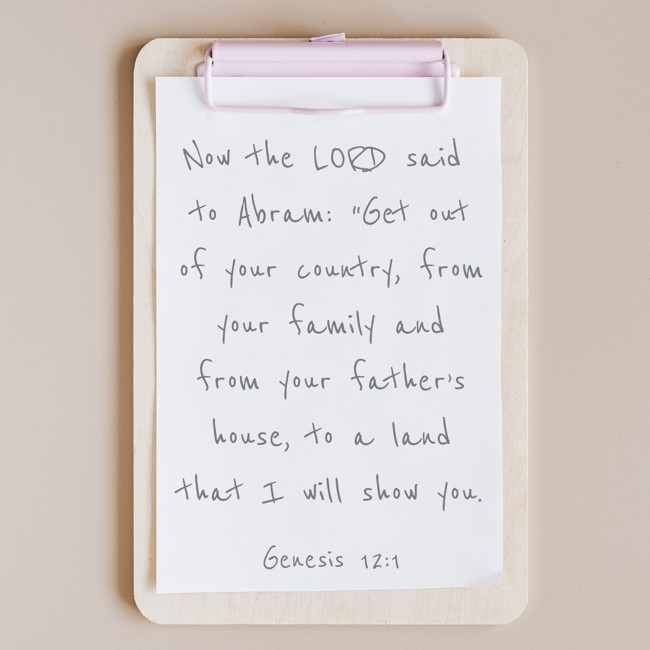 Now the LORD said
to Abram: "Get out
of your country, from
your family and
from your father's
house, to a land
that I will show you.
Genesis 12:1